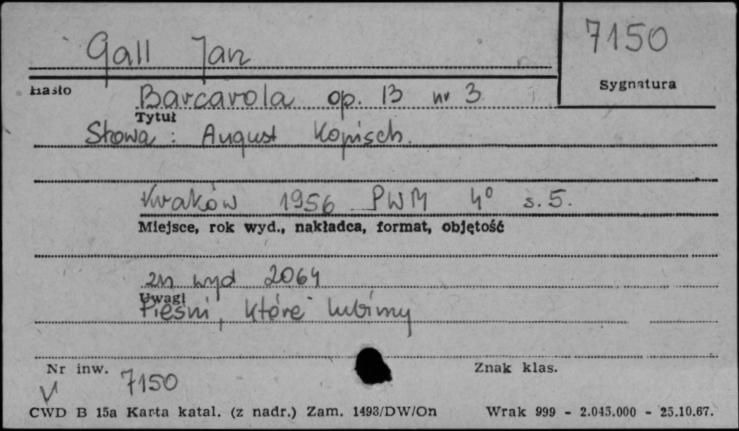 Gall Jan
7150
Hasło
Sygnatura
Barcarola op. 13 nr 3
Tytuł
Słowa: August Kopisch.
Kraków 1956 PWM 4° s. 5.
Miejsce, rok wyd., nakładca, format, objętość
zn wyd 2064
Uwagi
Pieśni, które lubimy
Nr inw.
Znak klas.
V 7150
CWD B 15a Karta katal. (z nadr.) Zam. 1493/DW/On
Wrak 999 - 2.045.000 - 25.10.67.